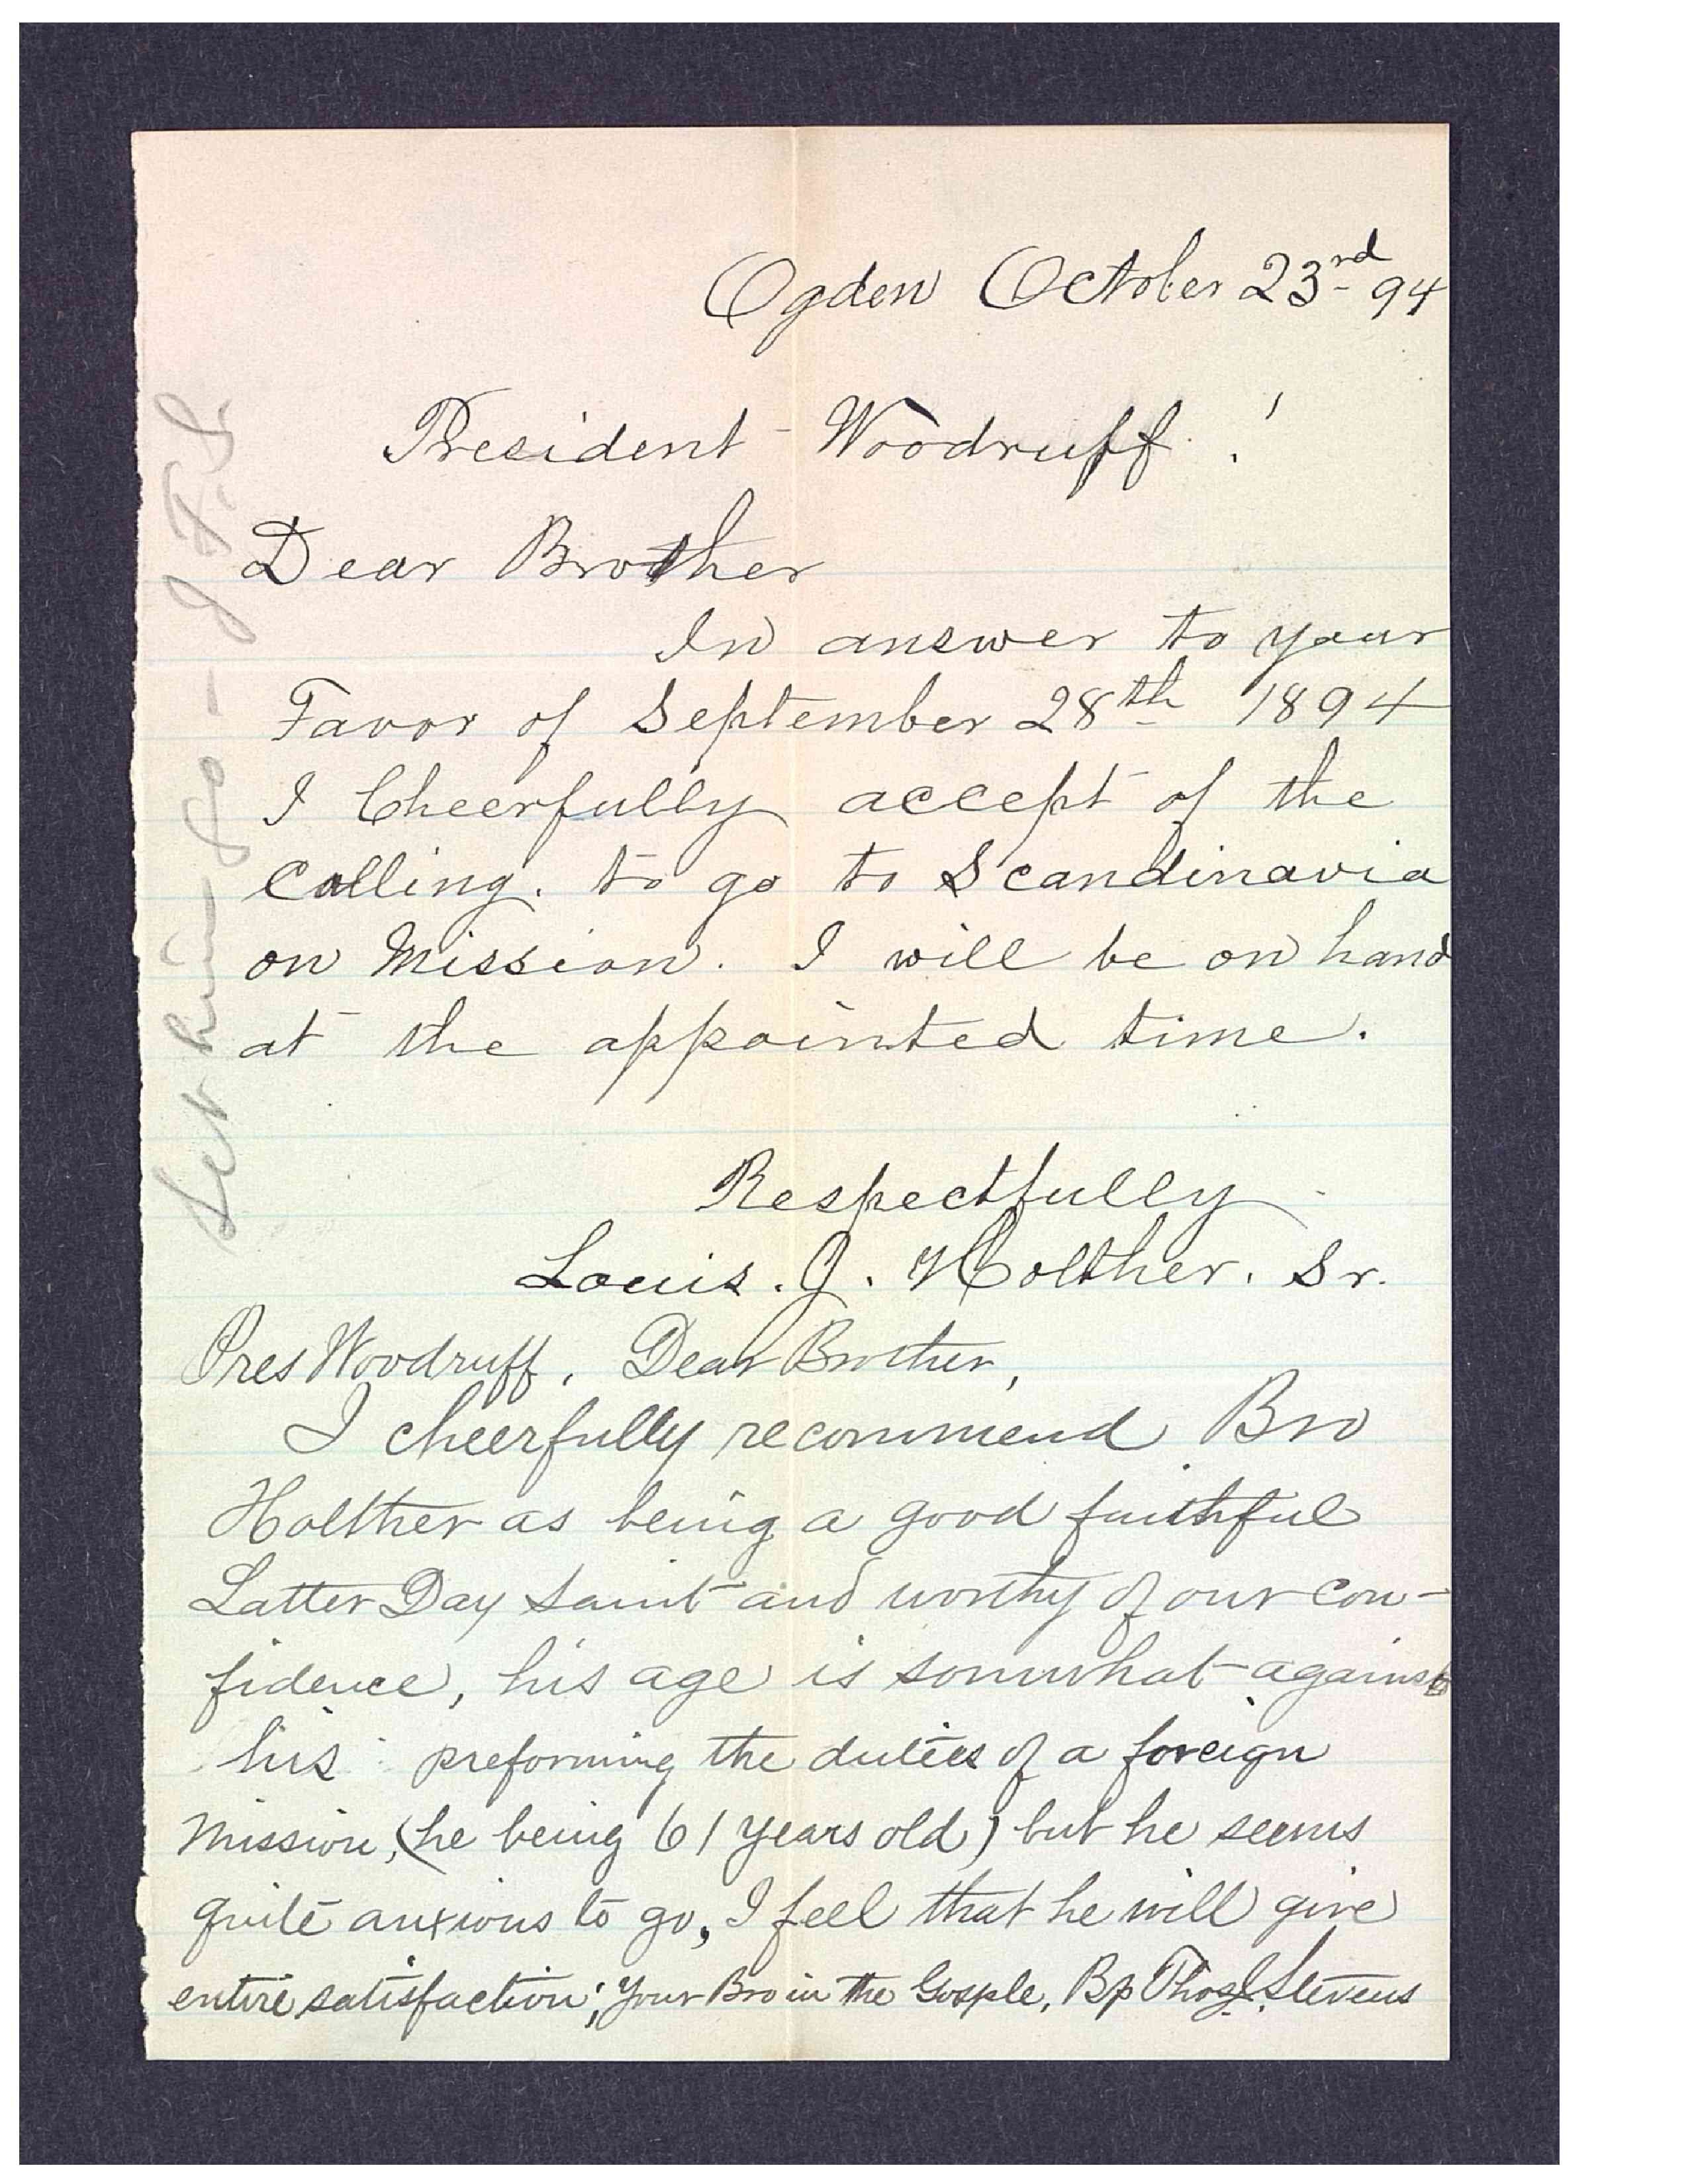 Ogden October 23rd 94
President Woodruff !
Dear Brother
In answer to your
Favor of September 28th 1894
I Cheerfully accept of the
Calling. to go to Scandinavia
on Mission. I will be on hand
at the appointed time.
Respectfully
Louis. J. Holther. Sr.
Pres Woodruff. Dear Brother,
I cheerfully recommend Bro
Holther as being a good faithful
Latter Day Saint and worthy of our con-
fidence, his age is somwhat against
his preforming the duties of a foreign
Mission, (he being 61 years old) but he seems
quite anxious to go, I feel that he will give
entire satisfaction; Your Bro in the Gosple, Bp Thos J. Stevens
Let him go - J F. S.